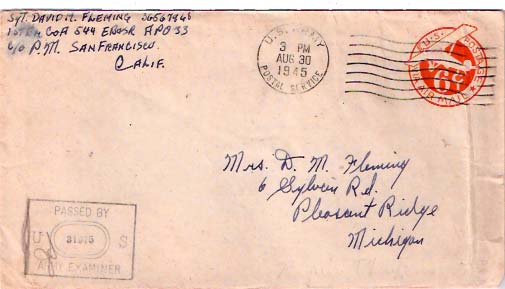 Sgt. David M. Fleming 36567968
Co A 544 EB&SR APO 33
c/o P.M. San Francisco
Calif.
U.S. ARMY
3 PM
AUG 30
1945
POSTAL SERVICE
U.S. POSTAGE
6¢
VIA AIR MAIL
Mrs. D. M. Fleming
6 Sylvan Rd.
Pleasant Ridge
Michigan
PASSED BY
U 31975 S
ARMY EXAMINER